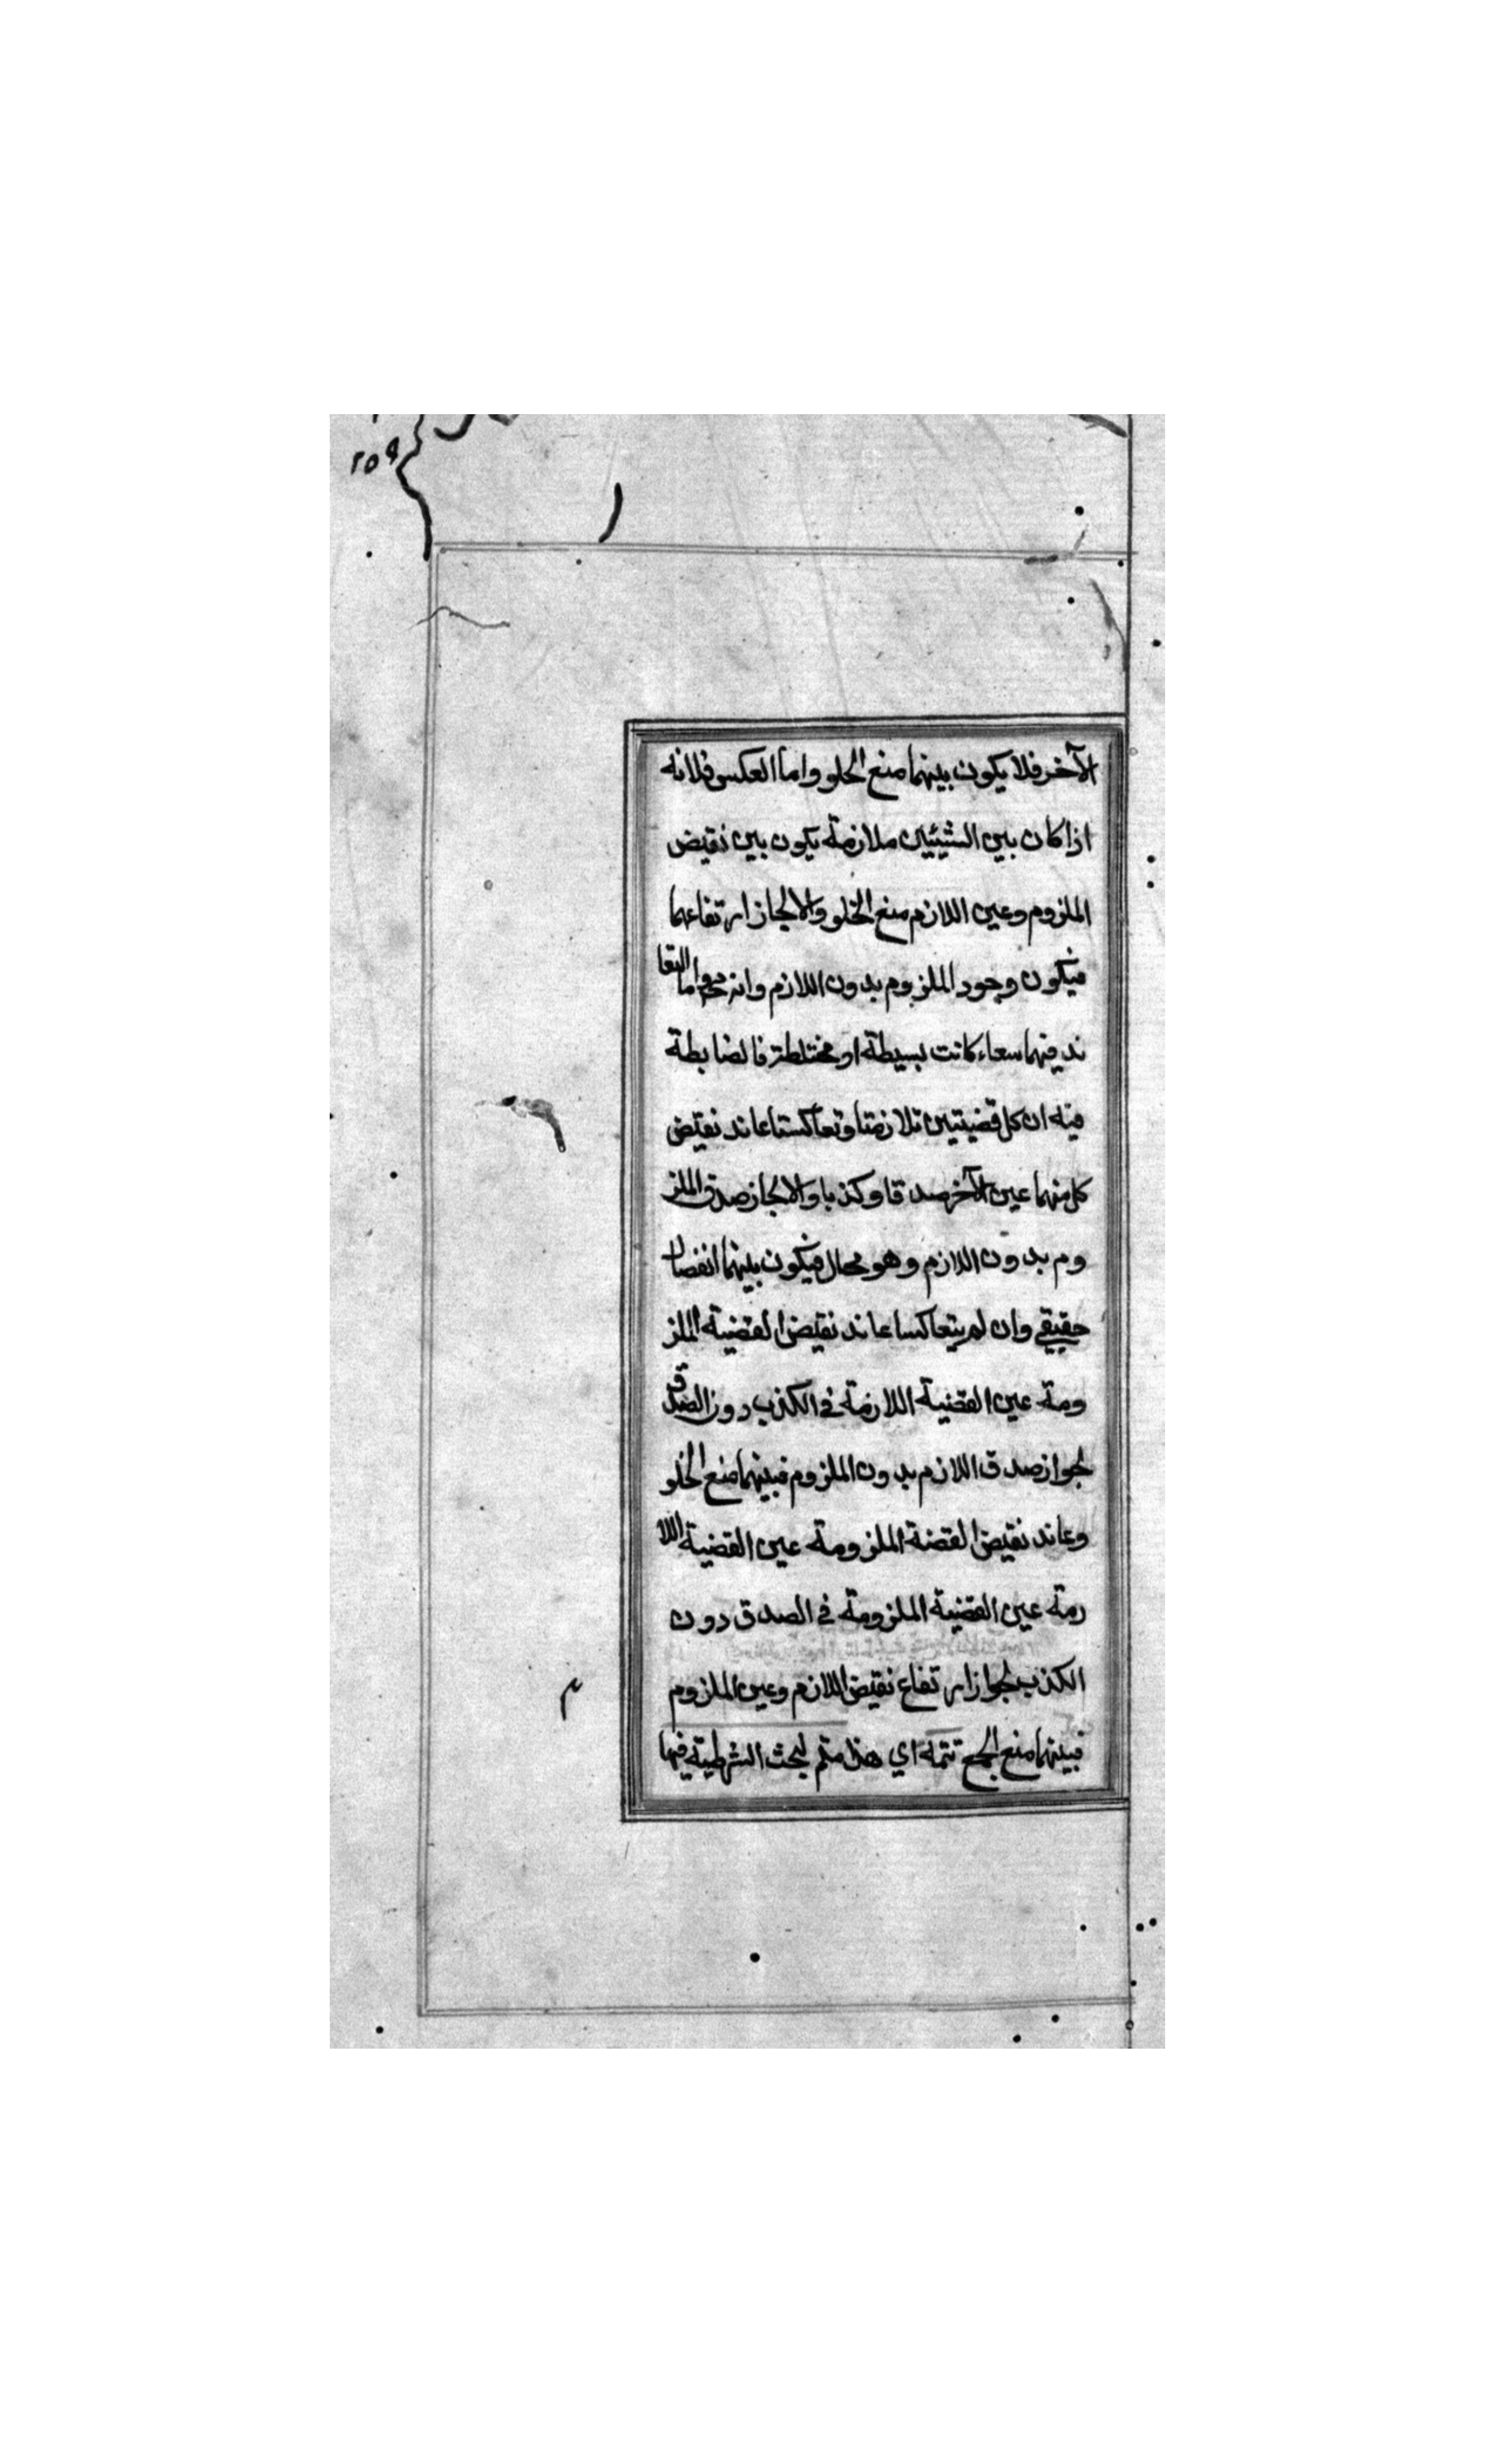 ٢٥٩
الآخر فلا يكون بينهما منع الخلو واما العكس فلانه
اذا كان بين الشيئين ملازمة يكون بين نقيض
الملزوم وعين اللازم منع الخلو والا لجاز ارتفاعهما
فيكون وجود الملزوم بدون اللازم وانه مح واما التعا
ند فيهما سعاء كانت بسيطة او مختلطة فالضابطة
فيه ان كل قضيتين تلازمتا وتعاكستا عاند نقيض
كل منهما عين الآخر صدقا وكذبا والا لجاز صدق الملز
وم بدون اللازم وهو محال فيكون بينهما انفصال
حقيقي وان لم يتعاكسا عاند نقيض القضية الملز
ومة عين القضية اللازمة في الكذب دون الصدق
لجواز صدق اللازم بدون الملزوم فبينهما منع الخلو
وعاند نقيض القضة الملزومة عين القضية اللا
زمة عين القضية الملزومة في الصدق دون
الكذب لجواز ارتفاع نقيض اللازم وعين الملزوم
فبينهما منع الجمع تتمة اي هذا متمم لبحث الشرطية فيها